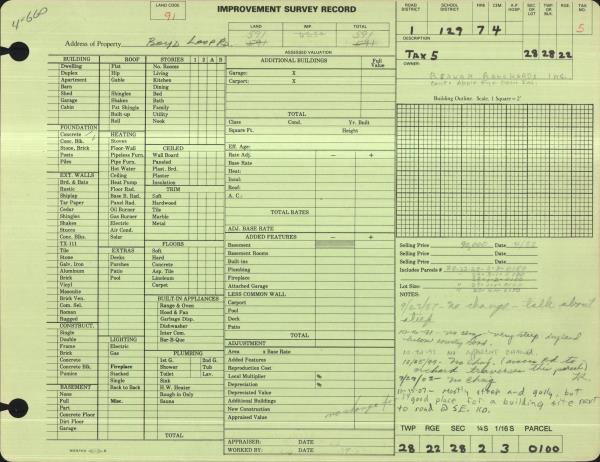 4-660
LAND CODE
91
IMPROVEMENT SURVEY RECORD
LAND
IMP.
TOTAL
591
591
Address of Property
Boyd Loop Rd.
ASSESSED VALUATION
ROAD DISTRICT
SCHOOL DISTRICT
HRB
CEM.
A.F. HOSP.
SEC OR LOT
TWP OR BLK.
RGE.
TAX NO.
129
7
4
5
DESCRIPTION
TAX 5
28:28:22
OWNER:
Building Outline: Scale, 1 Square = 2'
BUILDING
ROOF
STORIES
1
2
A
B
Dwelling
Flat
No. Rooms
Duplex
Hip
Living
Apartment
Gable
Kitchen
Barn
Dining
Shed
Shingles
Bed
Garage
Shakes
Bath
Cabin
Pat Shingle
Family
Built-up
Utility
Roll
Nook
FOUNDATION
Concrete
HEATING
Conc. Blk.
Stoves
CEILED
Stone, Brick
Floor-Wall
Wall Board
Posts
Pipeless Furn.
Paneled
Piles
Pipe Furn.
Plast. Brd.
Hot Water
Ceiling
Plaster
EXT. WALLS
Heat Pump
Insulation
Brd. & Bats
Radiant
TRIM
Rustic
Floor Rad.
Soft
Shiplap
Base B. Rad.
Hardwood
Tar Paper
Panel Rad.
Tile
Cedar
Oil Burner
Marble
Shingles
Gas Burner
Metal
Shakes
Electric
Stucco
Air Cond.
Conc. Blks.
Solar
FLOORS
TX-111
Soft
Tile
EXTRAS
Hard
Stone
Decks
Concrete
Galv. Iron
Porches
Asp. Tile
Aluminum
Patio
Linoleum
Brick
Pool
Carpet
Vinyl
Masonite
Brick Ven.
BUILT-IN APPLIANCES
Com. Sel.
Range & Oven
Roman
Hood & Fan
Rugged
Garbage Disp.
Dishwasher
CONSTRUCT.
Inter Com.
Single
Bar-B-Que
Double
LIGHTING
Frame
Electric
PLUMBING
Brick
Gas
1st G.
2nd G.
Concrete
Shower
Tub
Conc. Blk.
Fireplace
Toilet
Lav.
Pumice
Stacked
Sink
Single
H.W. Heater
BASEMENT
Back to Back
Rough in Only
None
Sauna
Full
Misc.
Part
Concrete Floor
Dirt Floor
Garage
TOTAL
ADDITIONAL BUILDINGS
Full Value
Garage:
X
Carport:
X
TOTAL
Class
Cond.
Yr. Built
Square Ft.
Height
Eff. Age:
Rate Adj.
–
+
Base Rate
Heat:
Insul:
Roof:
A. C.:
TOTAL RATES
ADJ. BASE RATE
ADDED FEATURES
–
+
Basement
Basement Rooms
Built-ins
Plumbing
Fireplace
Attached Garage
LESS COMMON WALL
Carport
Pool
Deck
Patio
TOTAL
ADJUSTMENT
Area
x Base Rate
Added Features
Reproduction Cost
Local Multiplier
%
Depreciation
%
Depreciated Value
Additional Buildings
New Construction
Appraised Value
no change
APPRAISER:
DATE
WORKED BY:
DATE
Selling Price
90,000
Date
4/88
Selling Price
Date
Includes Parcels #
Lot Size
NOTES:
no change - talk about
steep
no chg - very steep dry land
below county road.
10-30-91 NO APPARENT CHANGE
no chg. (access rd to
orchard traverses this parcel)
no chng
mostly steep and gully, but
good place for a building site next
to road @ SE.
TWP
RGE
SEC
1/4S
1/16 S
PARCEL
28
22
28
2
3
0100